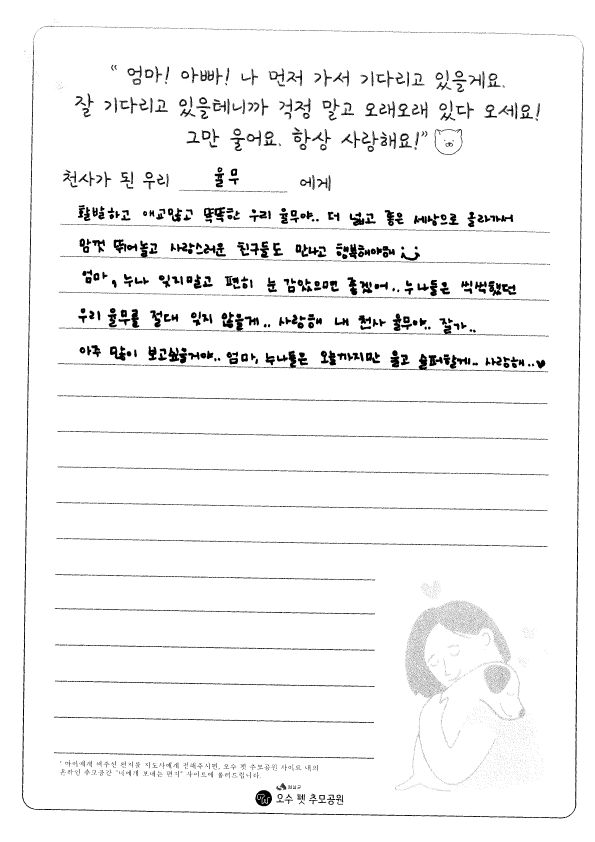 “ 엄마! 아빠! 나 먼저 가서 기다리고 있을게요.
잘 기다리고 있을테니까 걱정 말고 오래오래 있다 오세요!
그만 울어요. 항상 사랑해요!”
천사가 된 우리 율무 에게
활발하고 애교많고 똑똑한 우리 율무야.. 더 넓고 좋은 세상으로 올라가서
맘껏 뛰어놀고 사랑스러운 친구들도 만나고 행복해야해
엄마, 누나 잊지말고 편히 눈 감았으면 좋겠어.. 누나들은 씩씩했던
우리 율무를 절대 잊지 않을게.. 사랑해 내 천사 율무야.. 잘가..
아주 많이 보고싶을거야.. 엄마, 누나들은 오늘까지만 울고 슬퍼할게.. 사랑해..♥
* 아이에게 써주신 편지를 지도사에게 전해주시면, 오수 펫 추모공원 사이트 내의
온라인 추모공간 "너에게 보내는 편지" 사이트에 올려드립니다.
임실군
오수 펫 추모공원